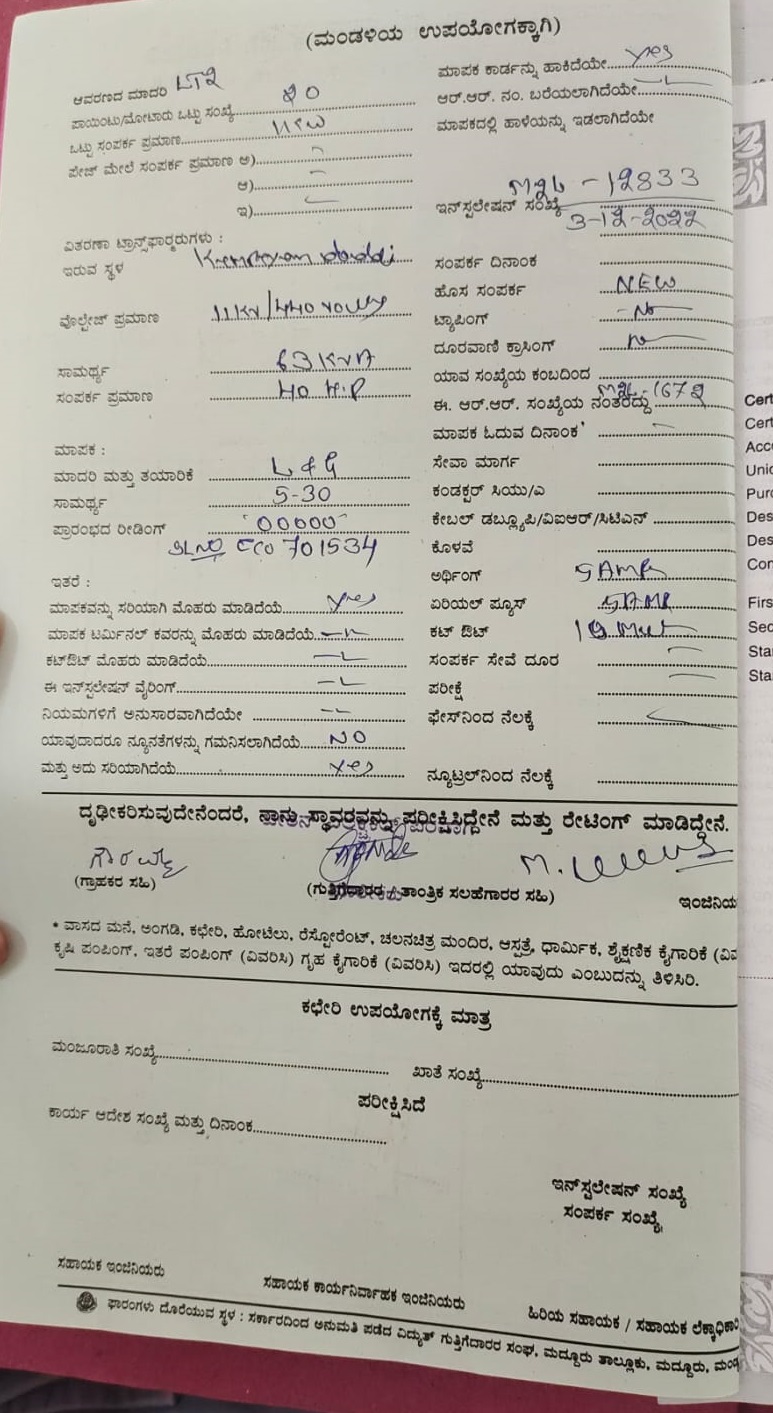 (ಮಂಡಳಿಯ ಉಪಯೋಗಕ್ಕಾಗಿ)
ಆವರಣದ ಮಾದರಿ LT2
ಪಾಯಿಂಟು/ಮೋಟಾರು ಒಟ್ಟು ಸಂಖ್ಯೆ
ಒಟ್ಟು ಸಂಪರ್ಕ ಪ್ರಮಾಣ
ಪೇಜ್ ಮೇಲೆ ಸಂಪರ್ಕ ಪ್ರಮಾಣ ಅ)
ಆ)
ಇ)
ವಿತರಣಾ ಟ್ರಾನ್ಸ್‌ಫಾರ್ಮರುಗಳು :
ಇರುವ ಸ್ಥಳ
ವೊಲ್ಟೇಜ್ ಪ್ರಮಾಣ 11KV/440 volts
ಸಾಮರ್ಥ್ಯ 63 KVA
ಸಂಪರ್ಕ ಪ್ರಮಾಣ 40 H.P
ಮಾಪಕ :
ಮಾದರಿ ಮತ್ತು ತಯಾರಿಕೆ L&G
ಸಾಮರ್ಥ್ಯ 5-30
ಪ್ರಾರಂಭದ ರೀಡಿಂಗ್ "00000"
SLNO ECO 701534
ಇತರೆ :
ಮಾಪಕವನ್ನು ಸರಿಯಾಗಿ ಮೊಹರು ಮಾಡಿದೆಯೆ yes
ಮಾಪಕ ಟರ್ಮಿನಲ್ ಕವರನ್ನು ಮೊಹರು ಮಾಡಿದೆಯೆ
ಕಟ್‌ಔಟ್ ಮೊಹರು ಮಾಡಿದೆಯೆ
ಈ ಇನ್‌ಸ್ಟಲೇಷನ್ ವೈರಿಂಗ್
ನಿಯಮಗಳಿಗೆ ಅನುಸಾರವಾಗಿದೆಯೇ
ಯಾವುದಾದರೂ ನ್ಯೂನತೆಗಳನ್ನು ಗಮನಿಸಲಾಗಿದೆಯೆ NO
ಮತ್ತು ಅದು ಸರಿಯಾಗಿದೆಯೆ yes
ಮಾಪಕ ಕಾರ್ಡನ್ನು ಹಾಕಿದೆಯೇ yes
ಆರ್.ಆರ್. ನಂ. ಬರೆಯಲಾಗಿದೆಯೇ
ಮಾಪಕದಲ್ಲಿ ಹಾಳೆಯನ್ನು ಇಡಲಾಗಿದೆಯೇ
ಇನ್‌ಸ್ಟಲೇಷನ್ ಸಂಖ್ಯೆ -12833
3-12-2022
ಸಂಪರ್ಕ ದಿನಾಂಕ
ಹೊಸ ಸಂಪರ್ಕ NEW
ಟ್ಯಾಪಿಂಗ್ No
ದೂರವಾಣಿ ಕ್ರಾಸಿಂಗ್ No
ಯಾವ ಸಂಖ್ಯೆಯ ಕಂಬದಿಂದ
ಈ. ಆರ್.ಆರ್. ಸಂಖ್ಯೆಯ ನಂತರದ್ದು 1672
ಮಾಪಕ ಓದುವ ದಿನಾಂಕ
ಸೇವಾ ಮಾರ್ಗ
ಕಂಡಕ್ಟರ್ ಸಿಯು/ಎ
ಕೇಬಲ್ ಡಬ್ಲ್ಯೂಪಿ/ವಿಐಆರ್/ಸಿಟಿಎಸ್
ಕೊಳವೆ
ಅರ್ಥಿಂಗ್
ಏರಿಯಲ್ ಪ್ಯೂಸ್
ಕಟ್ ಔಟ್
ಸಂಪರ್ಕ ಸೇವೆ ದೂರ
ಪರೀಕ್ಷೆ
ಫೇಸ್‌ನಿಂದ ನೆಲಕ್ಕೆ
ನ್ಯೂಟ್ರಲ್‌ನಿಂದ ನೆಲಕ್ಕೆ
ದೃಢೀಕರಿಸುವುದೇನೆಂದರೆ, ನಾನು ಸ್ಥಾವರವನ್ನು ಪರೀಕ್ಷಿಸಿದ್ದೇನೆ ಮತ್ತು ರೇಟಿಂಗ್ ಮಾಡಿದ್ದೇನೆ.
(ಗ್ರಾಹಕರ ಸಹಿ)
(ಗುತ್ತಿಗೆದಾರರ ತಾಂತ್ರಿಕ ಸಲಹೆಗಾರರ ಸಹಿ)
ಇಂಜಿನಿಯ
* ವಾಸದ ಮನೆ, ಅಂಗಡಿ, ಕಛೇರಿ, ಹೋಟೆಲು, ರೆಸ್ಟೋರೆಂಟ್, ಚಲನಚಿತ್ರ ಮಂದಿರ, ಆಸ್ಪತ್ರೆ, ಧಾರ್ಮಿಕ, ಶೈಕ್ಷಣಿಕ ಕೈಗಾರಿಕೆ (ವಿವ
ಕೃಷಿ ಪಂಪಿಂಗ್, ಇತರೆ ಪಂಪಿಂಗ್ (ವಿವರಿಸಿ) ಗೃಹ ಕೈಗಾರಿಕೆ (ವಿವರಿಸಿ) ಇದರಲ್ಲಿ ಯಾವುದು ಎಂಬುದನ್ನು ತಿಳಿಸಿರಿ.
ಕಛೇರಿ ಉಪಯೋಗಕ್ಕೆ ಮಾತ್ರ
ಮಂಜೂರಾತಿ ಸಂಖ್ಯೆ
ಖಾತೆ ಸಂಖ್ಯೆ
ಪರೀಕ್ಷಿಸಿದೆ
ಕಾರ್ಯ ಆದೇಶ ಸಂಖ್ಯೆ ಮತ್ತು ದಿನಾಂಕ
ಇನ್‌ಸ್ಟಲೇಷನ್ ಸಂಖ್ಯೆ
ಸಂಪರ್ಕ ಸಂಖ್ಯೆ
ಸಹಾಯಕ ಇಂಜಿನಿಯರು
ಸಹಾಯಕ ಕಾರ್ಯನಿರ್ವಾಹಕ ಇಂಜಿನಿಯರು
ಹಿರಿಯ ಸಹಾಯಕ / ಸಹಾಯಕ ಲೆಕ್ಕಾಧಿಕಾರಿ
ಫಾರಂಗಳು ದೊರೆಯುವ ಸ್ಥಳ : ಸರ್ಕಾರದಿಂದ ಅನುಮತಿ ಪಡೆದ ವಿದ್ಯುತ್ ಗುತ್ತಿಗೆದಾರರ ಸಂಘ, ಮದ್ದೂರು ತಾಲ್ಲೂಕು, ಮದ್ದೂರು, ಮಂಡ
Cert
Cert
Acc
Unic
Purc
Des
Des
Con
Firs
Sec
Sta
Sta